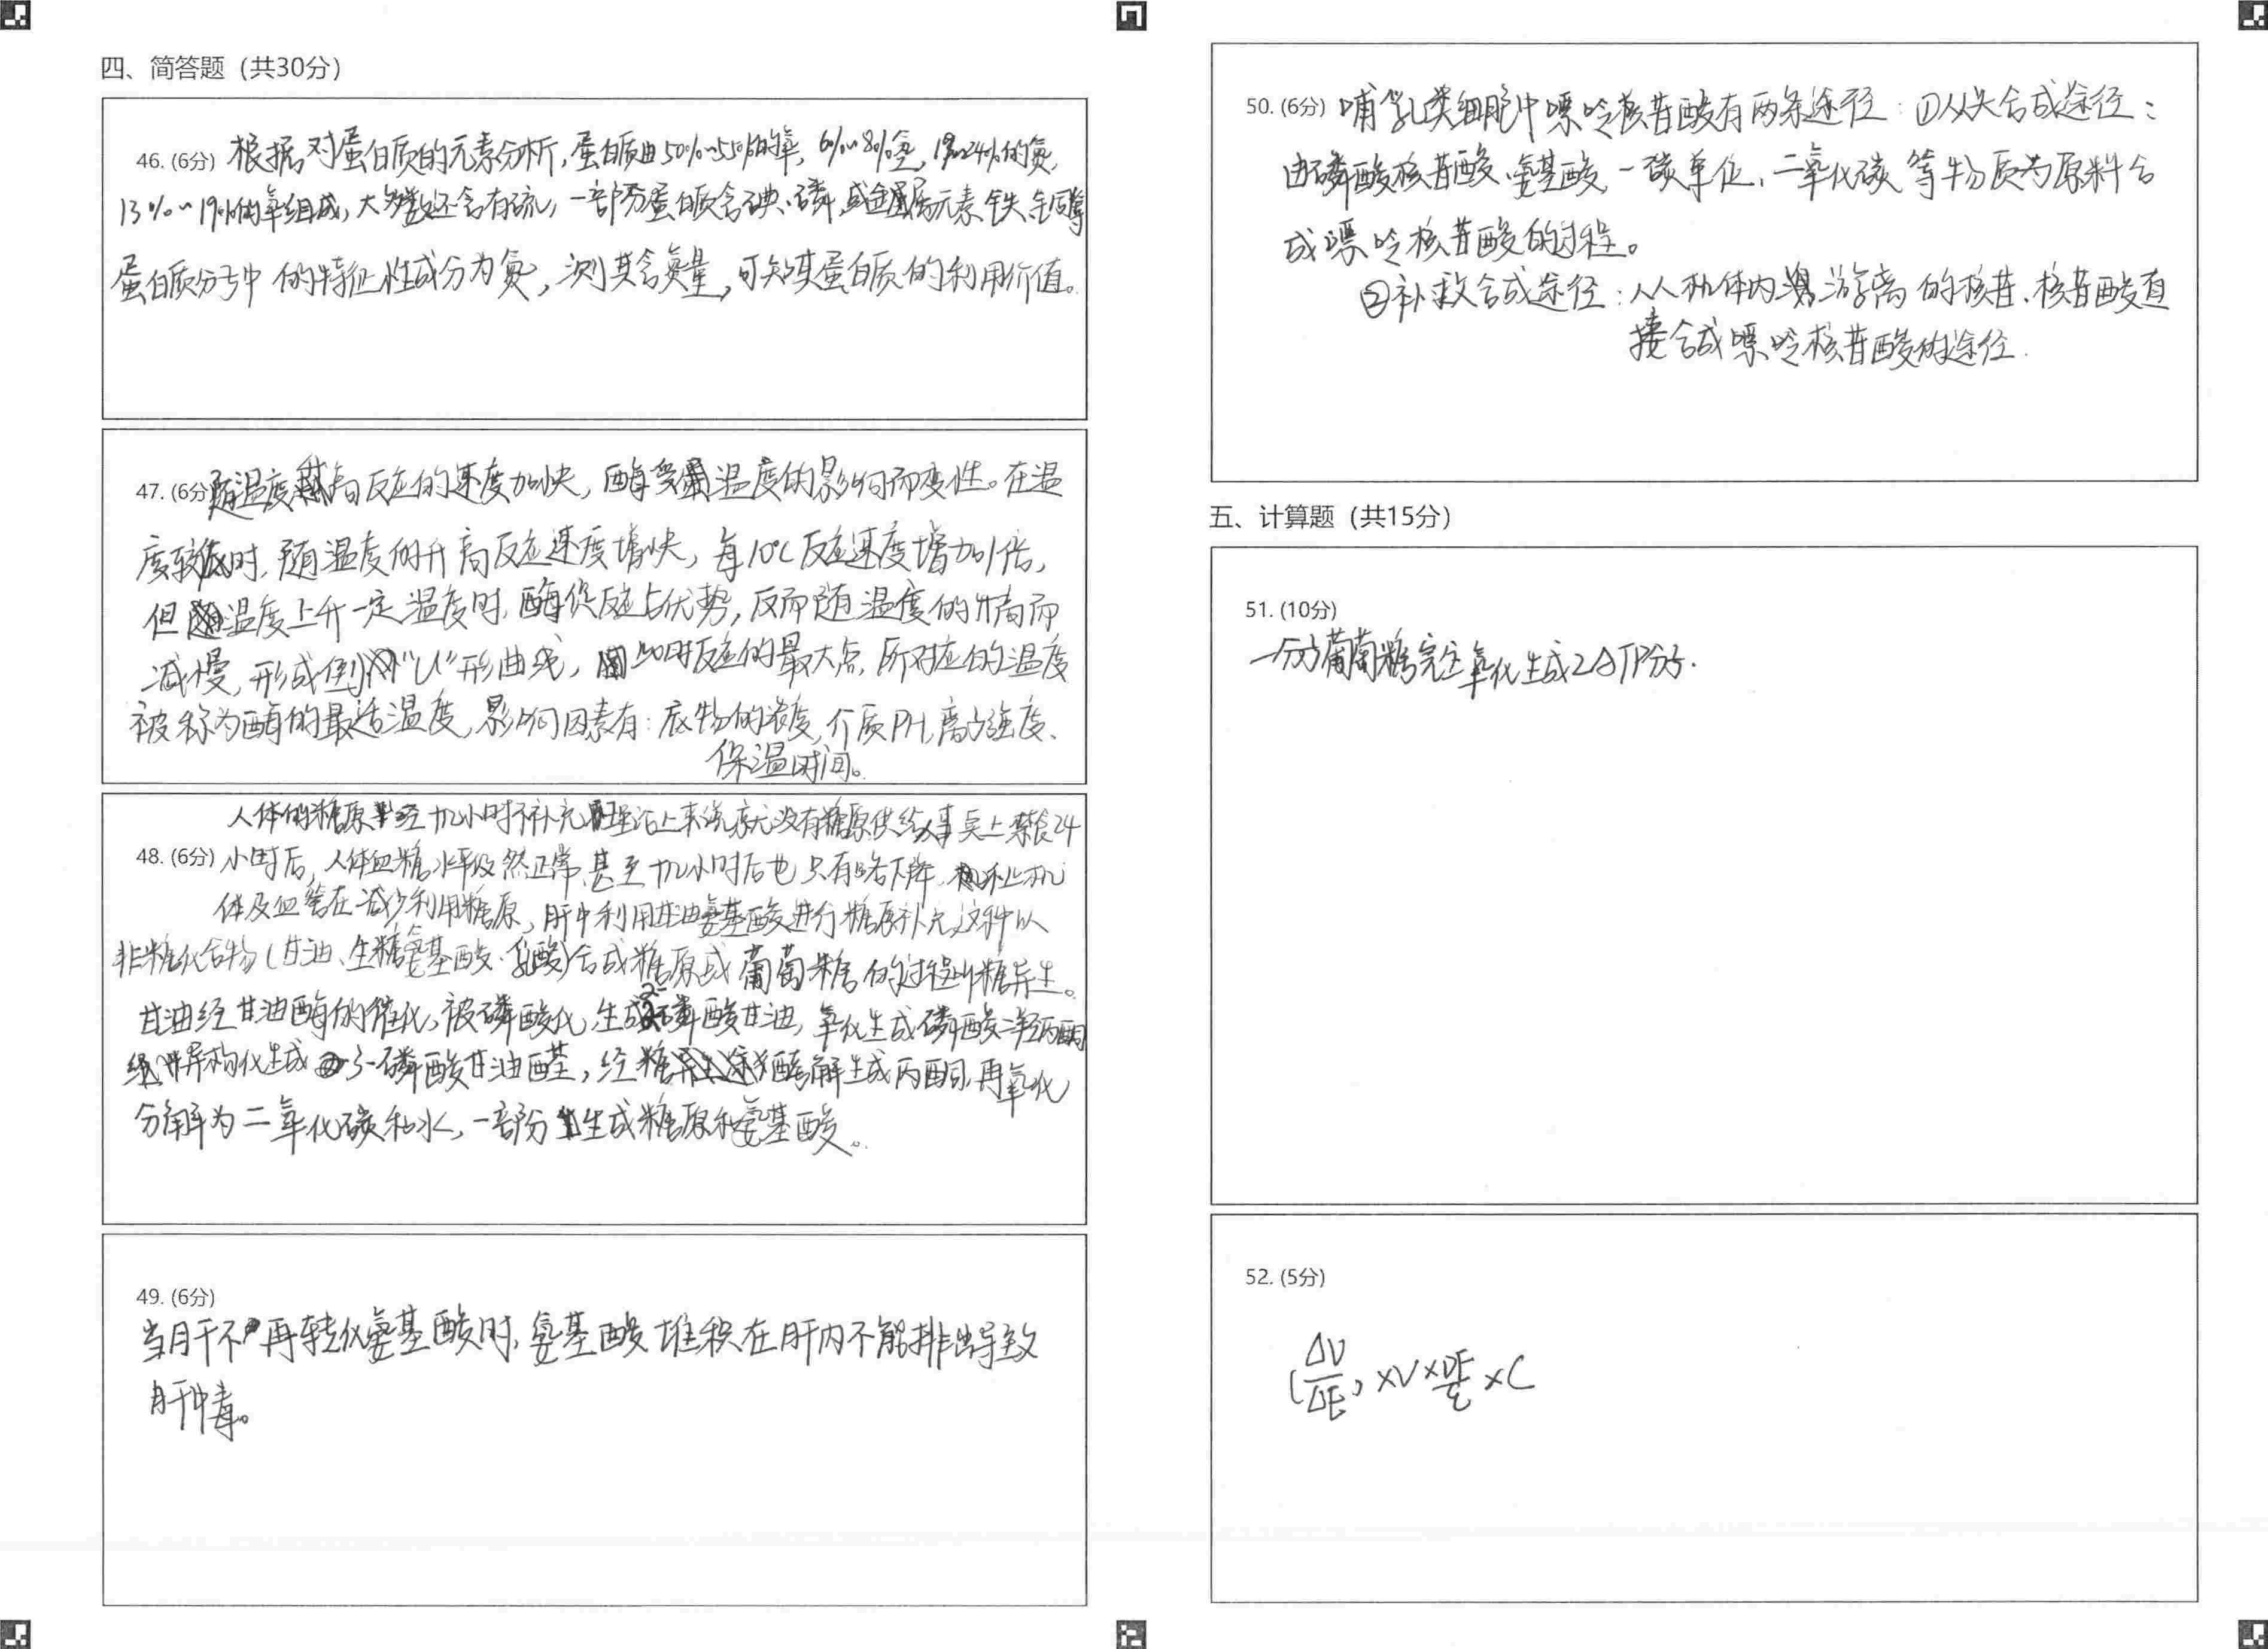 四、简答题（共30分）
46. (6分) 根据对蛋白质的元素分析，蛋白质由50%~55%的氧，6%~8%氢，19%~24%的氮，
13%~19%的氧组成，大多数还含有硫，一部分蛋白质含碘、磷或金属元素铁、铜等
蛋白质分子中的特征性成分为氮，测其含氮量，可知其蛋白质的利用价值。
47. (6分) 随温度升高反应的速度加快，酶受温度的影响而变性。在温
度较低时，随温度的升高反应速度增快，每10℃反应速度增加1倍，
但温度上升一定温度时，酶促反应占优势，反而随温度的升高而
减慢，形成倒"U"形曲线，此时反应的最大点，所对应的温度
被称为酶的最适温度，影响因素有：底物的浓度，介质PH，离子强度、
保温时间。
人体的糖原经十几小时不补充理论上来说就没有糖原供给，事实上禁食24
48. (6分) 小时后，人体血糖水平仍然正常，甚至十几小时后也只有略下降，机
体及血管在减少利用糖原，肝中利用甘油氨基酸进行糖原补充，这种以
非糖化合物（甘油、生糖氨基酸、乳酸）合成糖原或葡萄糖的过程叫糖异生。
甘油经甘油酶的催化，被磷酸化，生成2-磷酸甘油，氧化生成磷酸二羟丙酮
异构化生成3-磷酸甘油醛，经糖酵解生成丙酮，再氧化
分解为二氧化碳和水，一部分生成糖原和氨基酸。
49. (6分)
当肝不再转化氨基酸时，氨基酸堆积在肝内不能排出导致
肝中毒。
50. (6分) 哺乳类细胞中嘌呤核苷酸有两条途径：①从头合成途径：
由磷酸核苷酸、氨基酸、一碳单位、二氧化碳等物质为原料合
成嘌呤核苷酸的过程。
②补救合成途径：从机体内游离的核苷、核苷酸直
接合成嘌呤核苷酸的途径.
五、计算题（共15分）
51. (10分)
一分子葡萄糖完全氧化生成2ATP分子.
52. (5分)
(ΔV/ΔE)×V×DF/ε×C